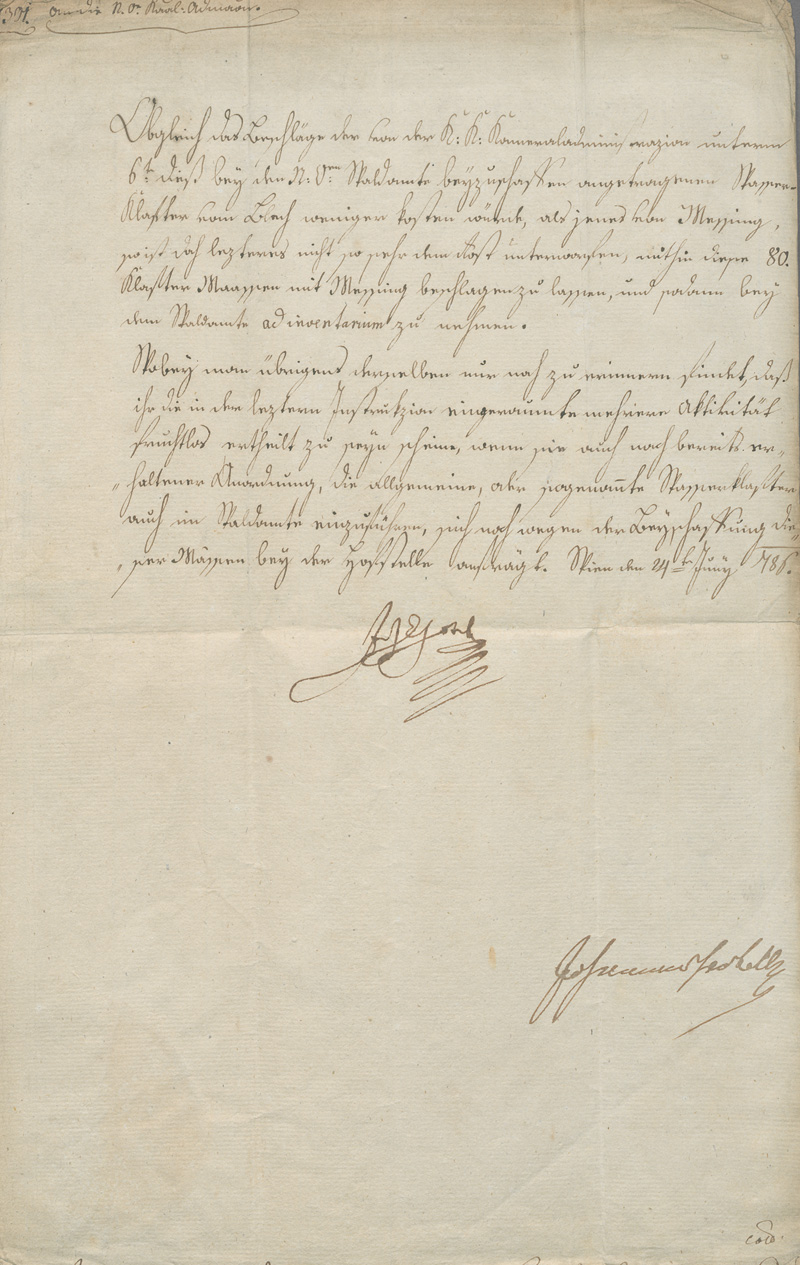 391. An die N. Ö. Kaal: Admaon.
Obgleich das Beschläge der von der K: K: Kameraladministrazion unterm
6ten dieß bey den N: Öen Waldamte beyzuschaffen angetragenen Wasser-
Klafter vom Blech weniger kosten würde, als jenes von Messing,
so ist doch lezteres nicht so sehr dem Rost unterworfen, mithin diese 80.
Klafter Maassen mit Messing beschlagen zu lassen, und sodann bey
dem Waldamte ad inventarium zu nehmen.
Wobey man übrigens derselben nur noch zu erinnern findet, daß
ihr die in der leztern Instrukzion eingeraumte mehrere Aktivität
fruchtlos ertheilt zu seyn scheine, wenn sie auch nach bereits er-
haltener Anordnung, die allgemeine, oder sogenannte Wasserklafter
auch im Waldamte einzuführen, sich noch wegen der Beyschaffung die-
ser Mässen bey der Hofstelle anfrägt. Wien den 24ten Juny 786.